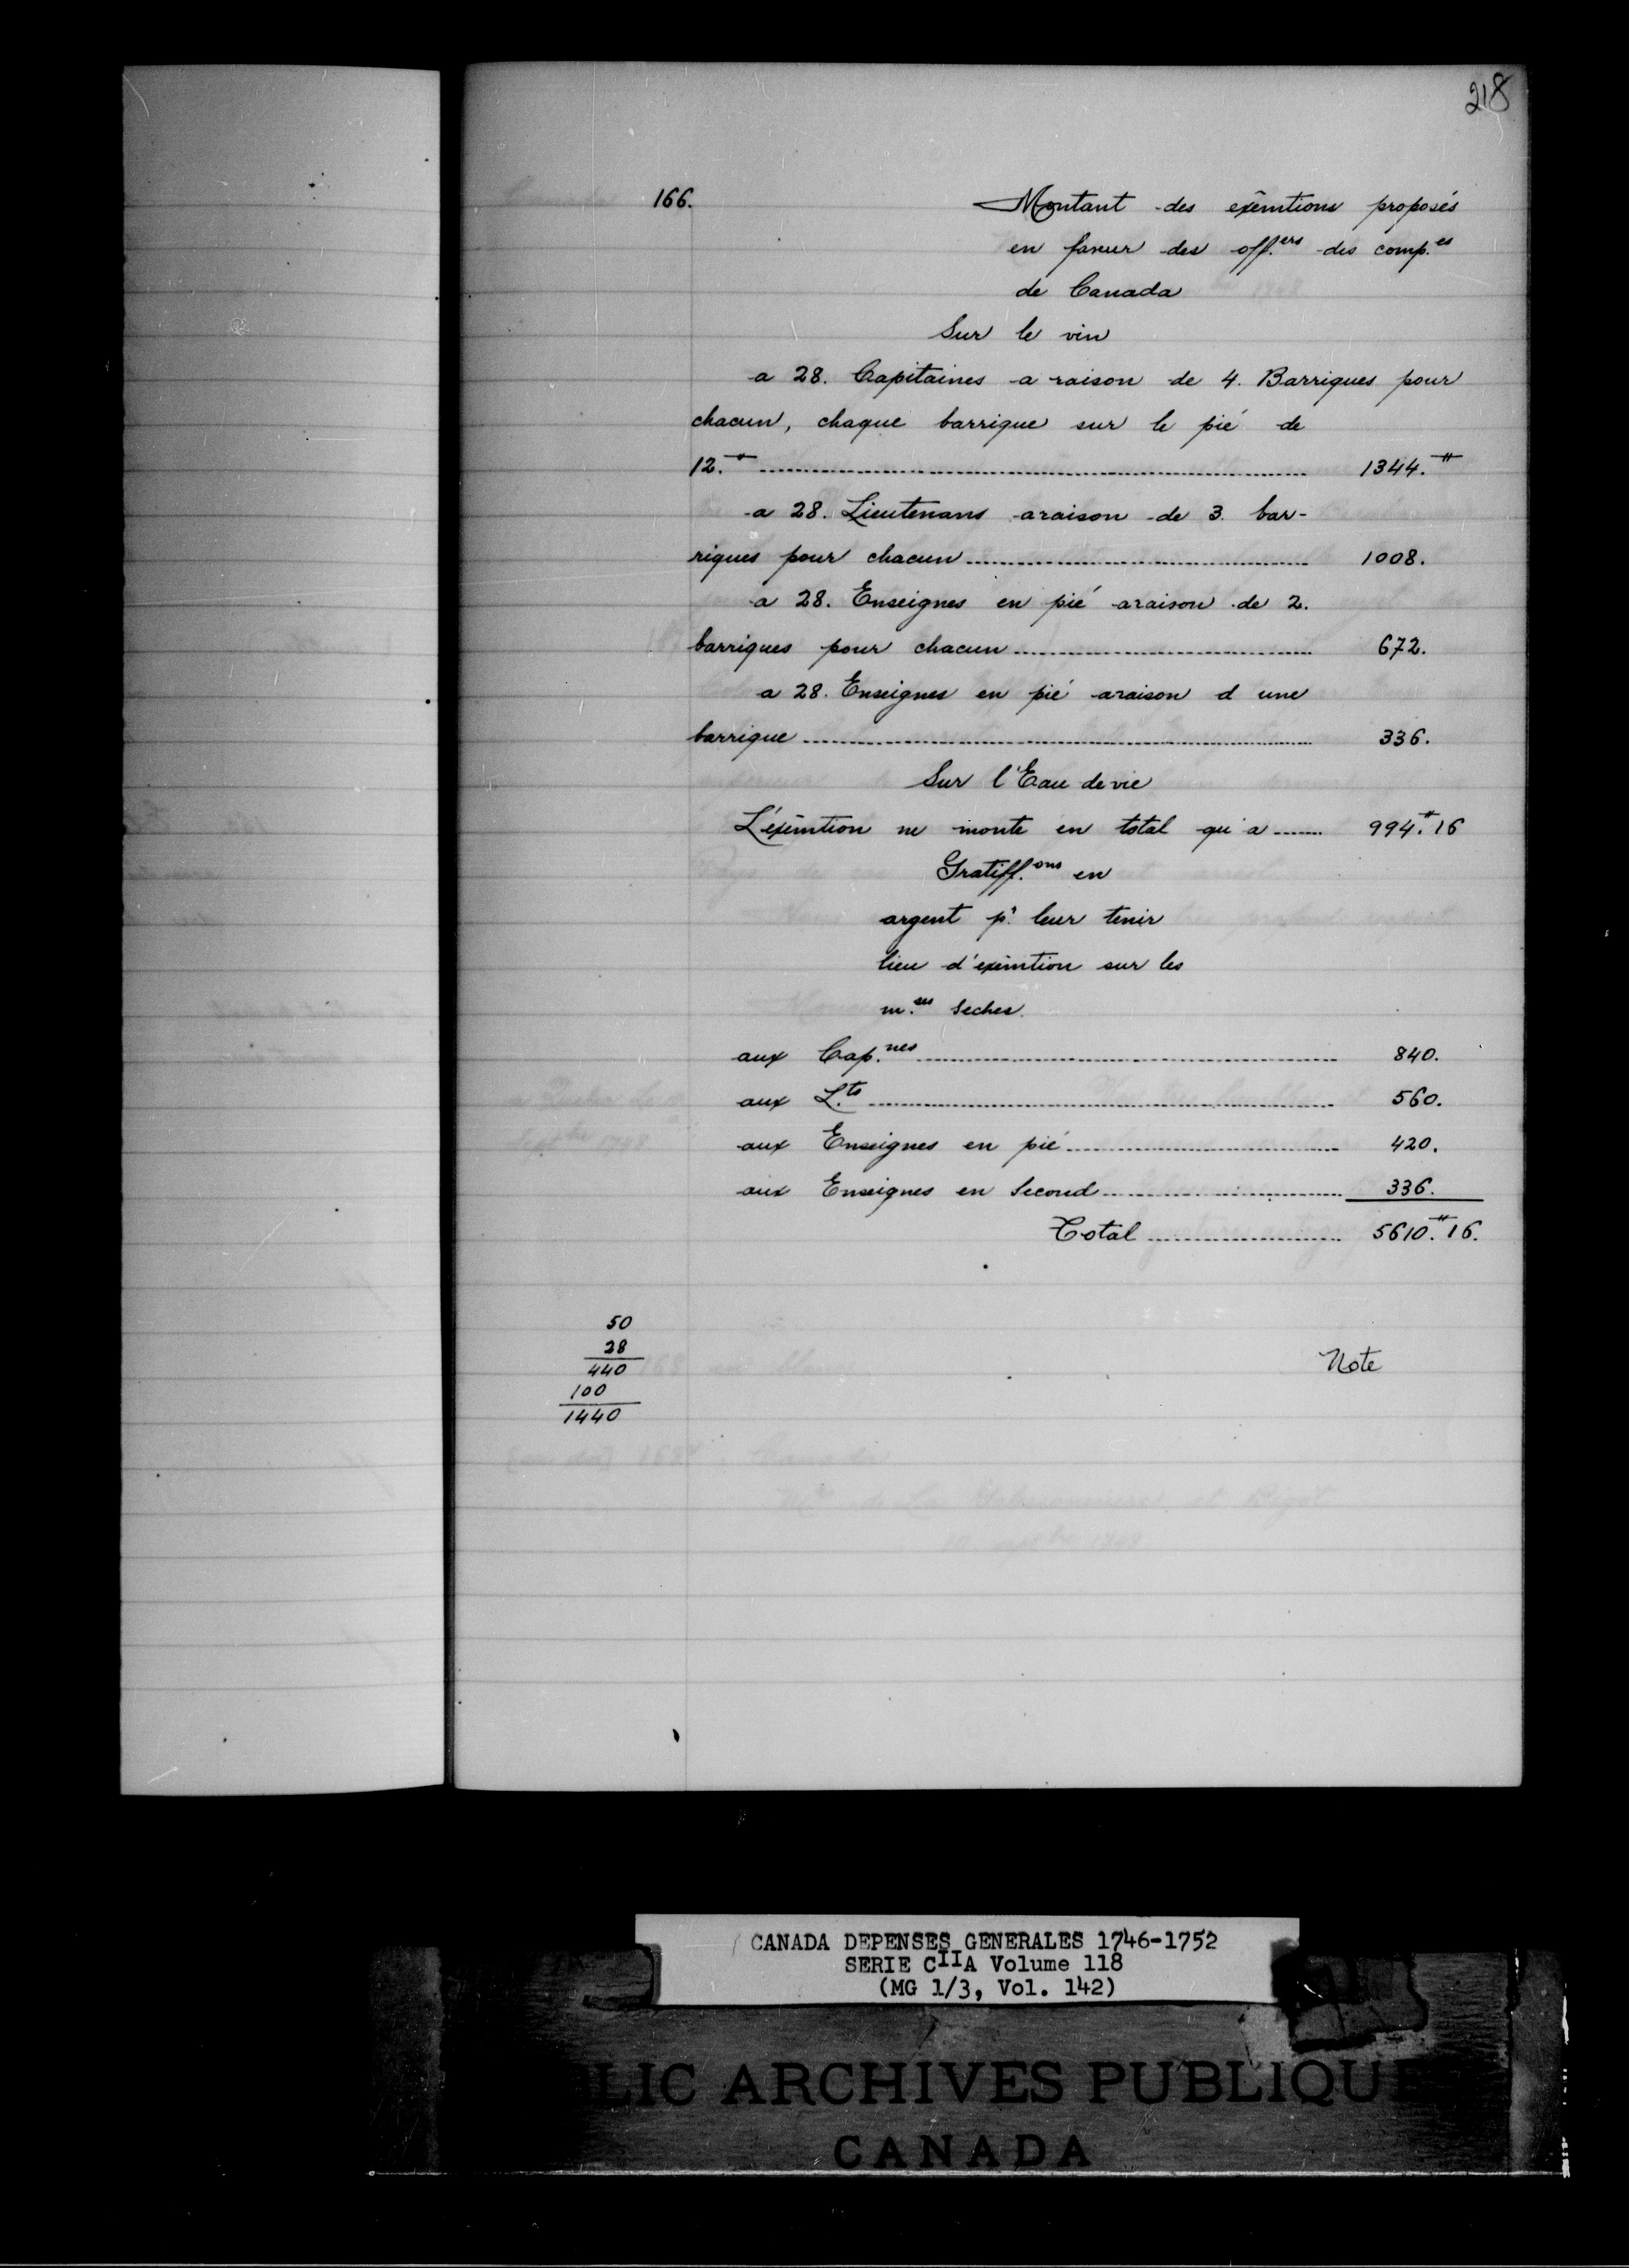 218
166.
Montant des exẽmtions proposés
en faveur des off.ers des comp.es
de Canada
Sur le vin
a 28. Capitaines a raison de 4. Barriques pour
chacun, chaque barrique sur le pié de
12.# 1344.#
a 28. Lieutenans araison de 3. bar-
riques pour chacun 1008.
a 28. Enseignes en pié araison de 2.
barriques pour chacun 672.
a 28. Enseignes en pié araison d une
barrique 336.
Sur l'Eau de vie
L'exẽmtion ne monte en total qu'a 994.# 16
Gratiff.ons en
argent pr. leur tenir
lieu d'exẽmtion sur les
m.ses Seches
aux Cap.nes 840.
aux L.ts 560.
aux Enseignes en pié 420.
aux Enseignes en Second 336.
Total 5610.# 16.
50
28
440
100
1440
Note
CANADA DEPENSES GENERALES 1746-1752
SERIE CIIA Volume 118
(MG 1/3, Vol. 142)
LIC ARCHIVES PUBLIQUE
CANADA